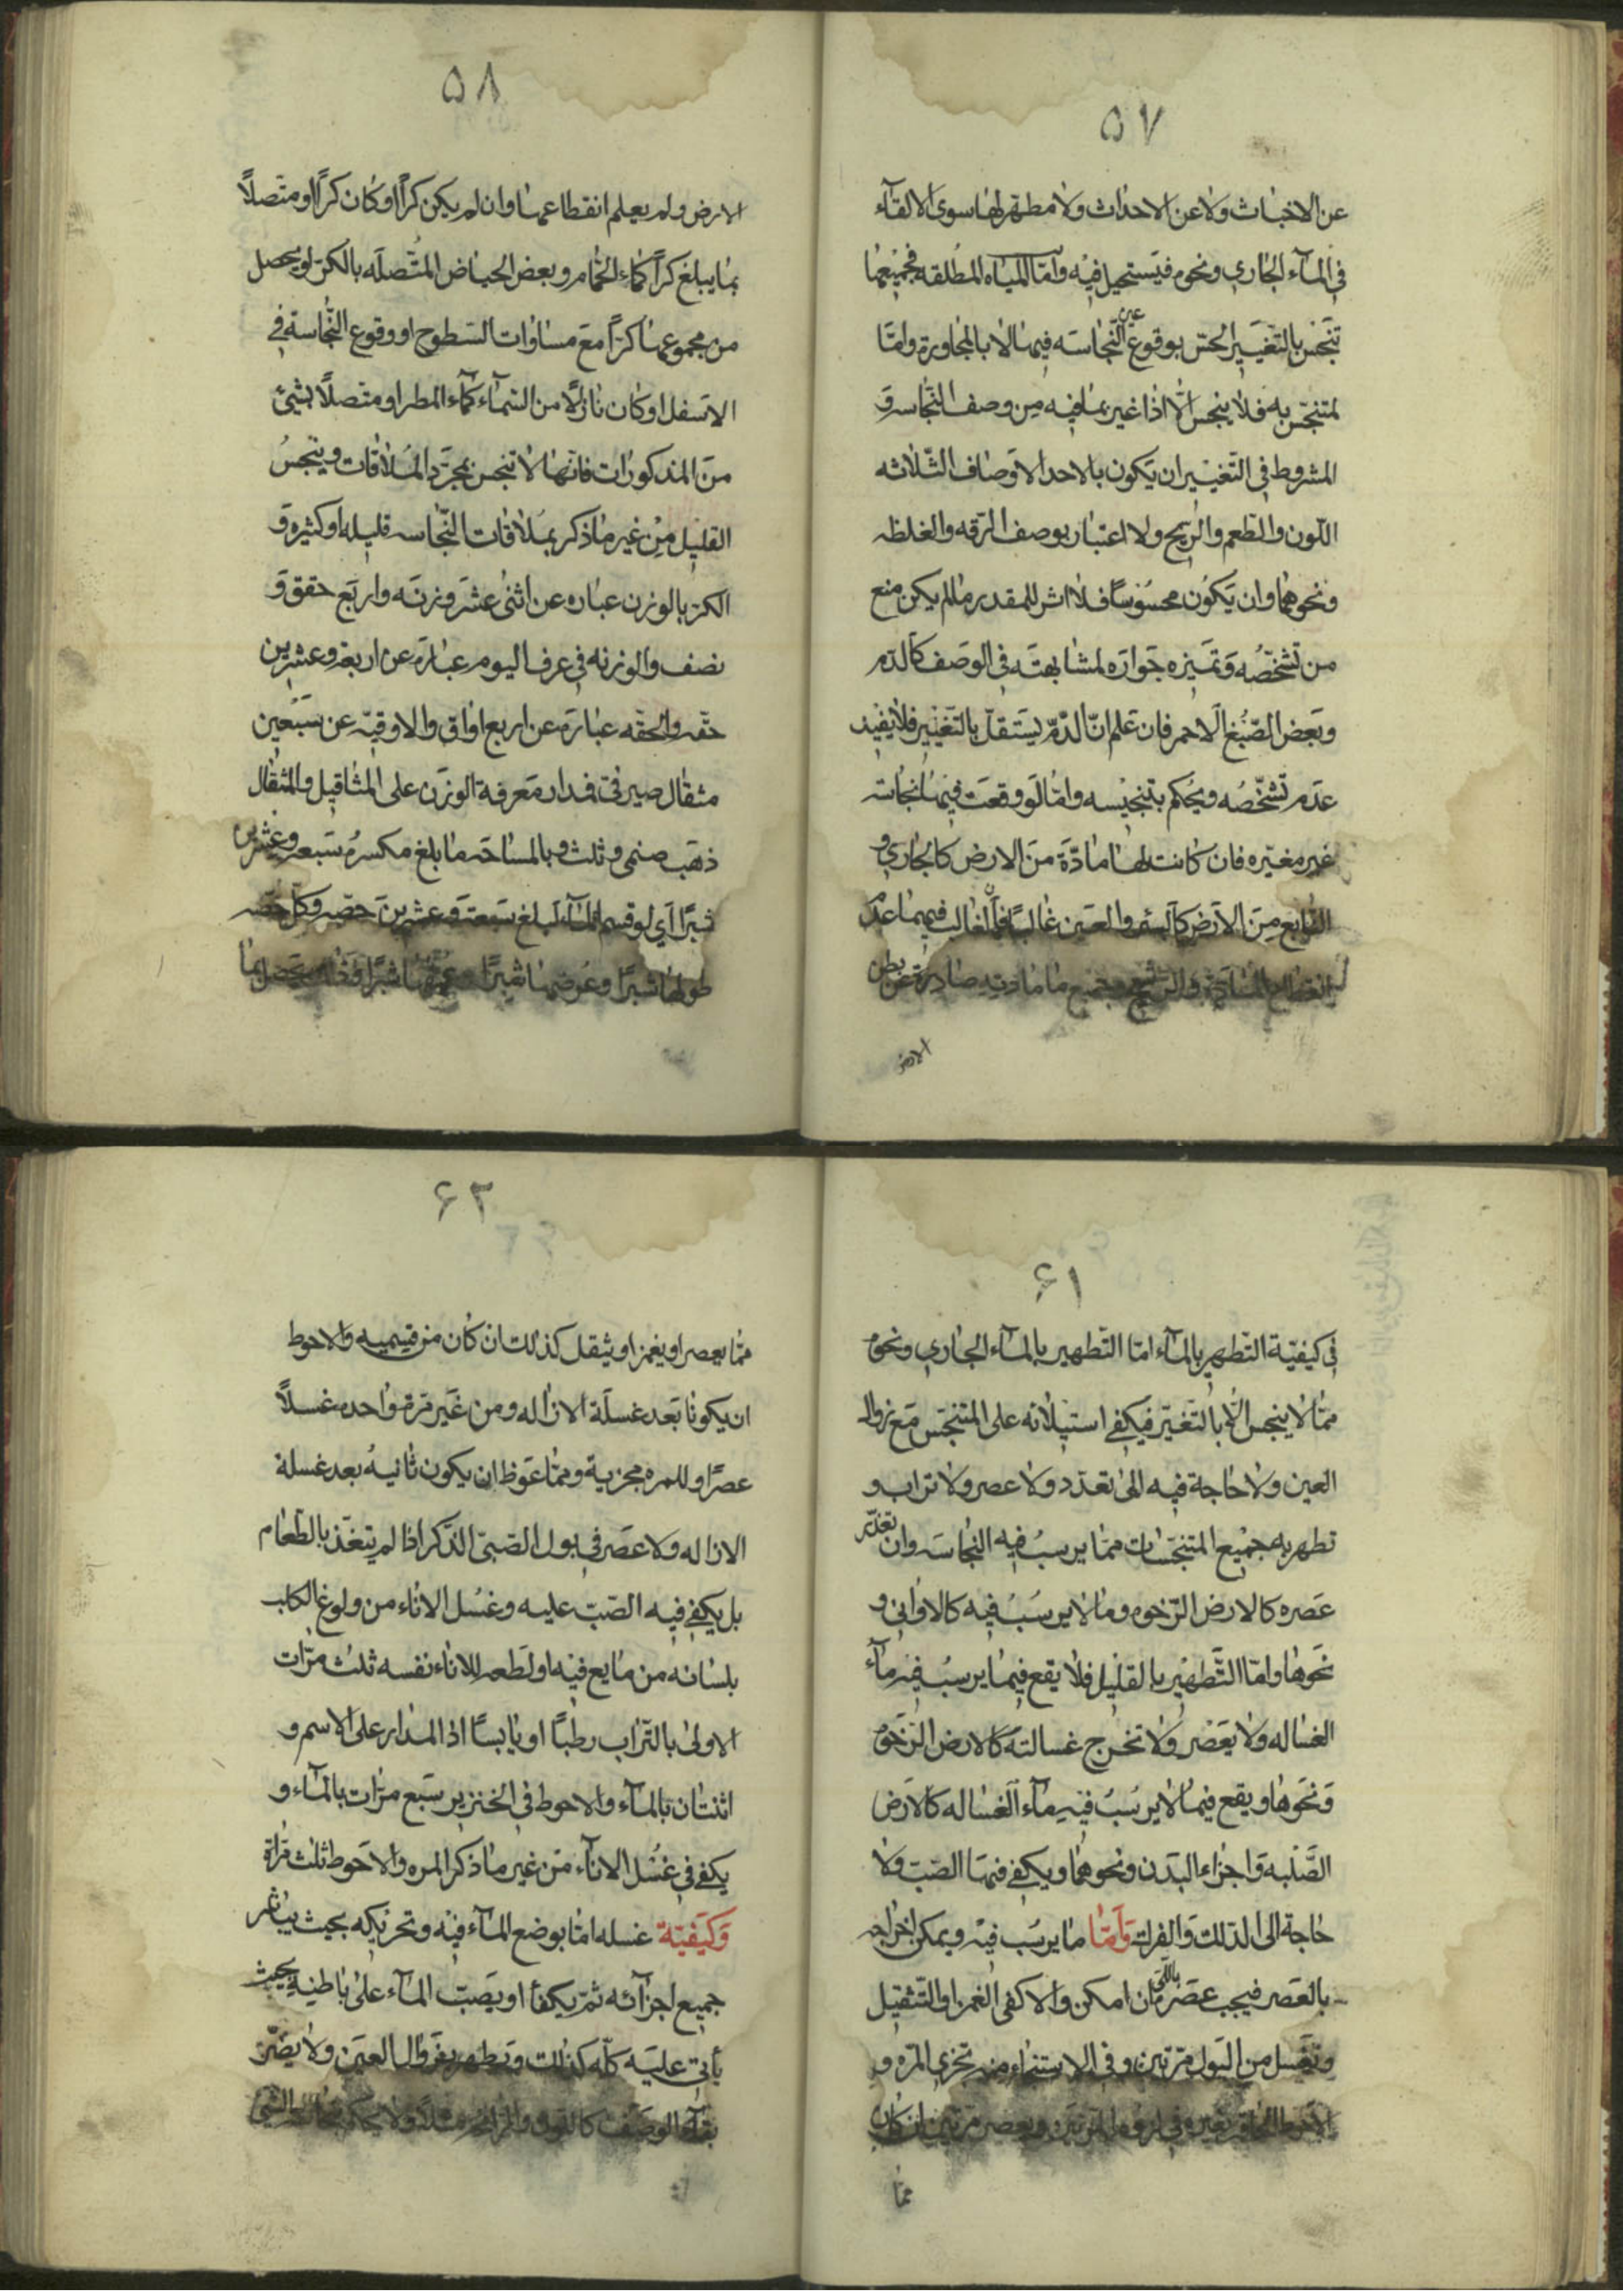 ۵۷
عن الاخباث ولا عن الاحداث ولا مطهر لها سوى الالقآء
في المآء الجاري ونحوه فيستحيل فيه وامّا المياه المطلقه فجميعها
تنجس بالتغيير الحسّ بوقوع عين النّجاسه فيها لا بالمجاورة وامّا
لمتنجّس به فلا ينجس الّا اذا غير بما فيه من وصف النّجاسه و
المشروط في التّغيير ان يكون بالاحد الاوصاف الثّلاثه
اللّون والطّعم والرّيح ولا اعتبار بوصف الرّقه والغلظه
ونحوهما وان يكون محسوسًا فلا اثر للمقدر ما لم يكن منع
من تشخّصه وتميزه جواره لمشابهته في الوصف كالدّم
وبعض الصّبغ الاحمر فان علم انّ الدّم يستقلّ بالتّغيير فلا يفيد
عدم تشخّصه ويحكم بتنجيسه وامّا لو وقعت فيها نجاسه
غير مغيّره فان كانت لها مادّة من الارض كالجاري و
النّابع من الارض كالبئر والعين غالبًا فانّ الغالب فيهما عدم
انقطاع المادّة والرّشح وجميع ما مادته صادرة عن بطن
الارض
۵۸
الارض ولم يعلم انقطاعها وان لم يكن كرًّا او كان كرًّا او متّصلًا
بما يبلغ كرًّا كماء الحمّام وبعض الحياض المتّصله بالكرّ او يحصل
من مجموعها كرًّا مع مساوات السّطوح او وقوع النّجاسة في
الاسفل او كان نازلًا من السّمآء كمآء المطر او متّصلًا بشئ
من المذكورات فانّها لا تنجس بمجرّد الملاقات وينجس
القليل من غير ما ذكر بملاقات النّجاسه قليله او كثيره و
الكرّ بالوزن عباره عن اثنى عشر وزنه واربع حقق و
نصف والوزنه في عرف اليوم عبارة عن اربعة وعشرين
حقّه والحقّه عبارة عن اربع اواق والاوقيّه عن سبعين
مثقال صيرفى فمدار معرفة الوزن على المثاقيل والمثقال
ذهب صنمى وثلث وبالمساحه ما بلغ مكسره سبعة وعشرين
شبرًا اي لو قسم المآء لبلغ سبعة وعشرين حصّه وكل حصّه
طولها شبرًا وعرضها شبرًا وعمقها شبرًا
۶۱
في كيفيّة التّطهير بالمآء امّا التّطهير بالمآء الجاري ونحوه
ممّا لا ينجس الّا بالتّغيّر فيكفي استيلائه على المتنجّس مع زوال
العين ولا حاجة فيه الى تعدّد ولا عصر ولا تراب و
تطهر به جميع المتنجّسات ممّا يرسب فيه النّجاسه وان تعذّر
عصره كالارض الرّخوه وما لا يرسب فيه كالاوانى و
نحوها وامّا التّطهير بالقليل فلا يقع فيما يرسب فيه مآء
الغساله ولا يعصر ولا تخرج غسالته كالارض الرّخوه
ونحوها ويقع فيما لا يرسب فيه مآء الغساله كالارض
الصّلبه واجزاء البدن ونحوهما ويكفي فيها الصّبّ ولا
حاجة الى الدلك والفرك وامّا ما يرسب فيه ويمكن اخراجه
بالعصر فيجب عصره باللّيّ ان امكن والا كفى الغمز او التّثقيل
وتغسل من البول مرّتين وفي الاستنجاء منه تجزي المرّه و
ممّا
۶۲
ممّا يعصر او يغمز او يثقل كذلك ان كان من قسيميه والاحوط
ان يكونا بعد غسلة الازاله ومن غيره مرة واحده غسلًا
عصرًا وللمره مجزية وممّا تغوّط ان يكون ثانيه بعد غسلة
الازاله ولا عصر في بول الصّبىّ الذّكر اذا لم يتغذّ بالطّعام
بل يكفي فيه الصّبّ عليه وغسل الاناء من ولوغ الكلب
بلسانه من مايع فيه او لطعه للاناء نفسه ثلث مرّات
الاولى بالتّراب رطبًا او يابسًا اذ المدار على الاسم و
اثنتان بالمآء والاحوط في الخنزير سبع مرّات بالمآء و
يكفي في غسل الانآء من غير ما ذكر المره والاحوط ثلث مرّاة
وكيفيّة غسله امّا بوضع المآء فيه وتحريكه بحيث يباشر
جميع اجزآئه ثمّ يكفأ او يصبّ المآء على باطنه بحيث
يأتي عليه كلّه كذلك ويطهر بزوال العين ولا يضرّ
بقآء الوصف كاللّون والرّائحه مثلًا ولا يحكم بنجاسة الشئ